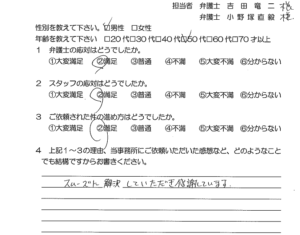 担当者 弁護士 吉田竜二
弁護士 小野塚直毅
性別を教えて下さい。☑男性 □女性
年齢を教えて下さい □20代□30代□40代☑50代□60代□70才以上
1 弁護士の応対はどうでしたか。
①大変満足 ②満足 ③普通 ④不満 ⑤大変不満 ⑥分からない
2 スタッフの応対はどうでしたか。
①大変満足 ②満足 ③普通 ④不満 ⑤大変不満 ⑥分からない
3 ご依頼された件の進め方はどうでしたか。
①大変満足 ②満足 ③普通 ④不満 ⑤大変不満 ⑥分からない
4 上記1~3の理由、当事務所にご依頼いただいた感想など、どのようなこと
でも結構ですからお書きください。
スムーズに解決していただき感謝しています。